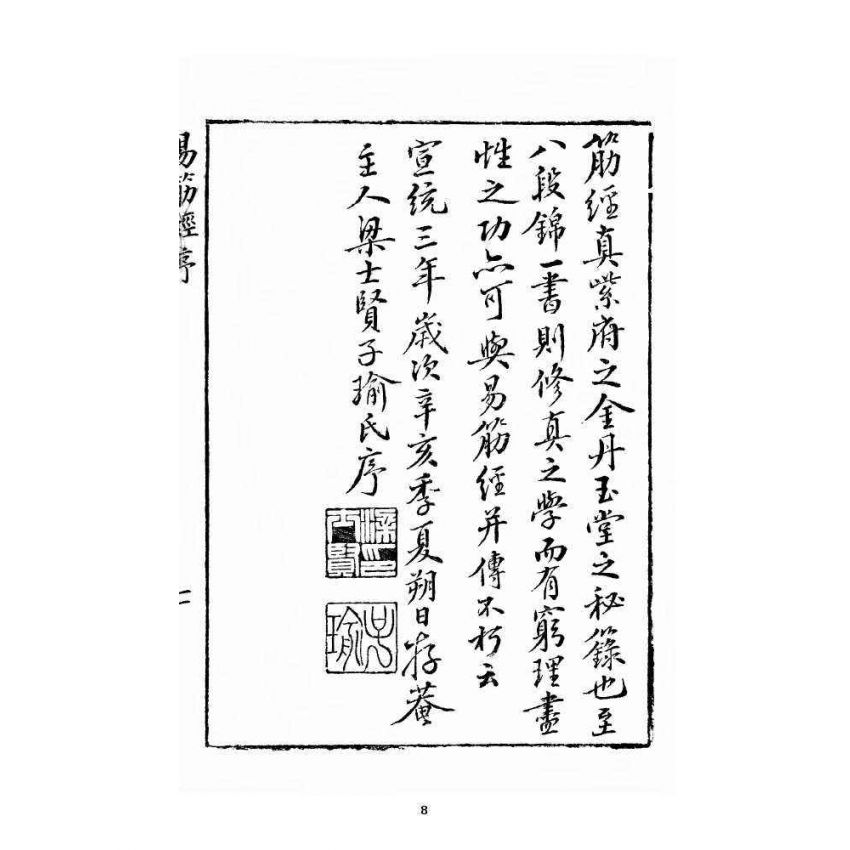 筋經真紫府之金丹玉堂之秘籙也至
八段錦一書則修真之學而有窮理盡
性之功亦可與易筋經并傳不朽云
宣統三年歲次辛亥季夏朔日存菴
主人梁士賢子瑜氏序
梁士賢印
子瑜
易筋經序
二
8